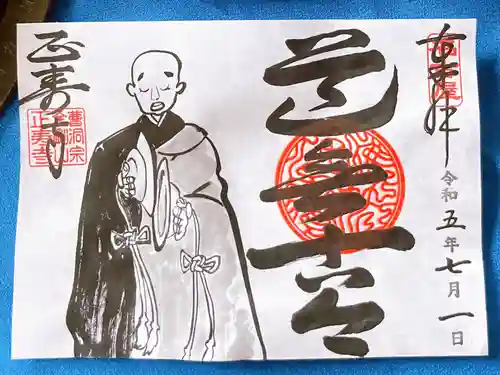 奉拝
令和五年七月一日
道無古今
正寿寺
曹洞宗
正寿寺